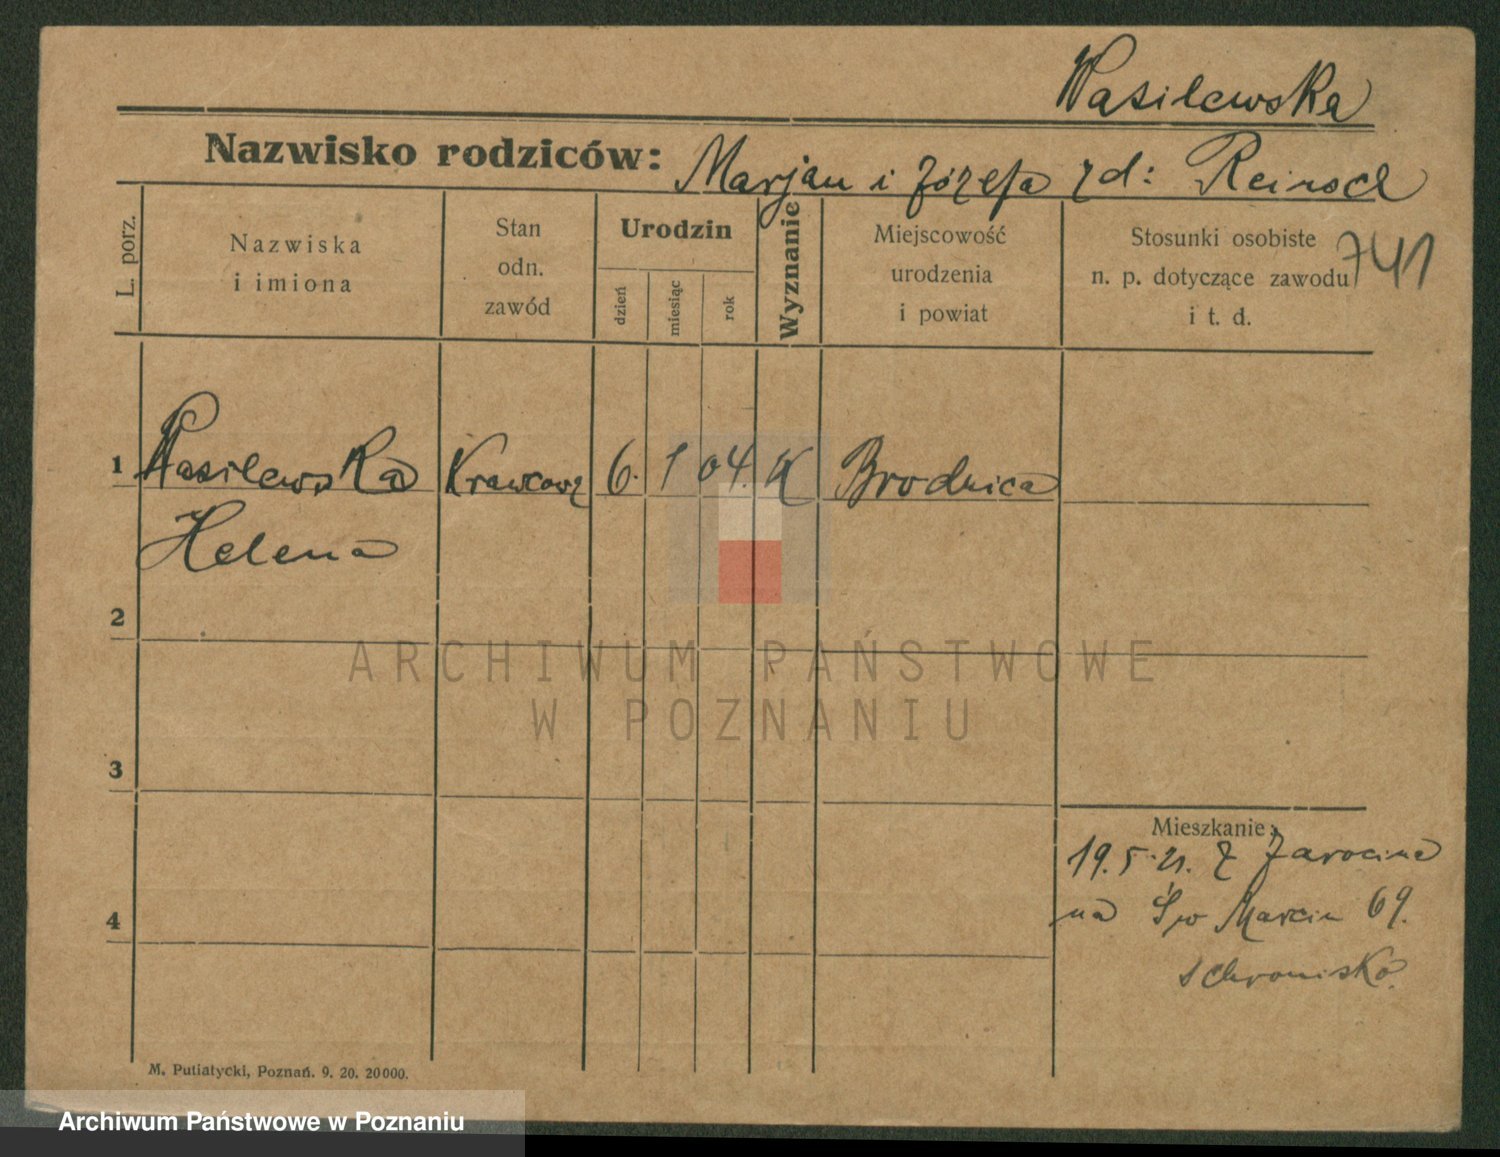 Wasilewska
Nazwisko rodziców: Marjan i Józefa zd:
L. porz.
Nazwiska
i imiona
Stan
odn.
zawód
Urodzin
dzień
miesiąc
rok
Wyznanie
Miejscowość
urodzenia
i powiat
Stosunki osobiste
n. p. dotyczące zawodu
i t. d.
741
1 Wasilewska Krawcową 6. 1 04. K Brodnica
Helena
2
3
4
Mieszkanie:
19. 5. 21. Z Jarocina
na Św Marcin 69.
schronisko.
M. Putiatycki, Poznań. 9. 20. 20000.
ARCHIWUM PAŃSTWOWE
W POZNANIU
Archiwum Państwowe w Poznaniu